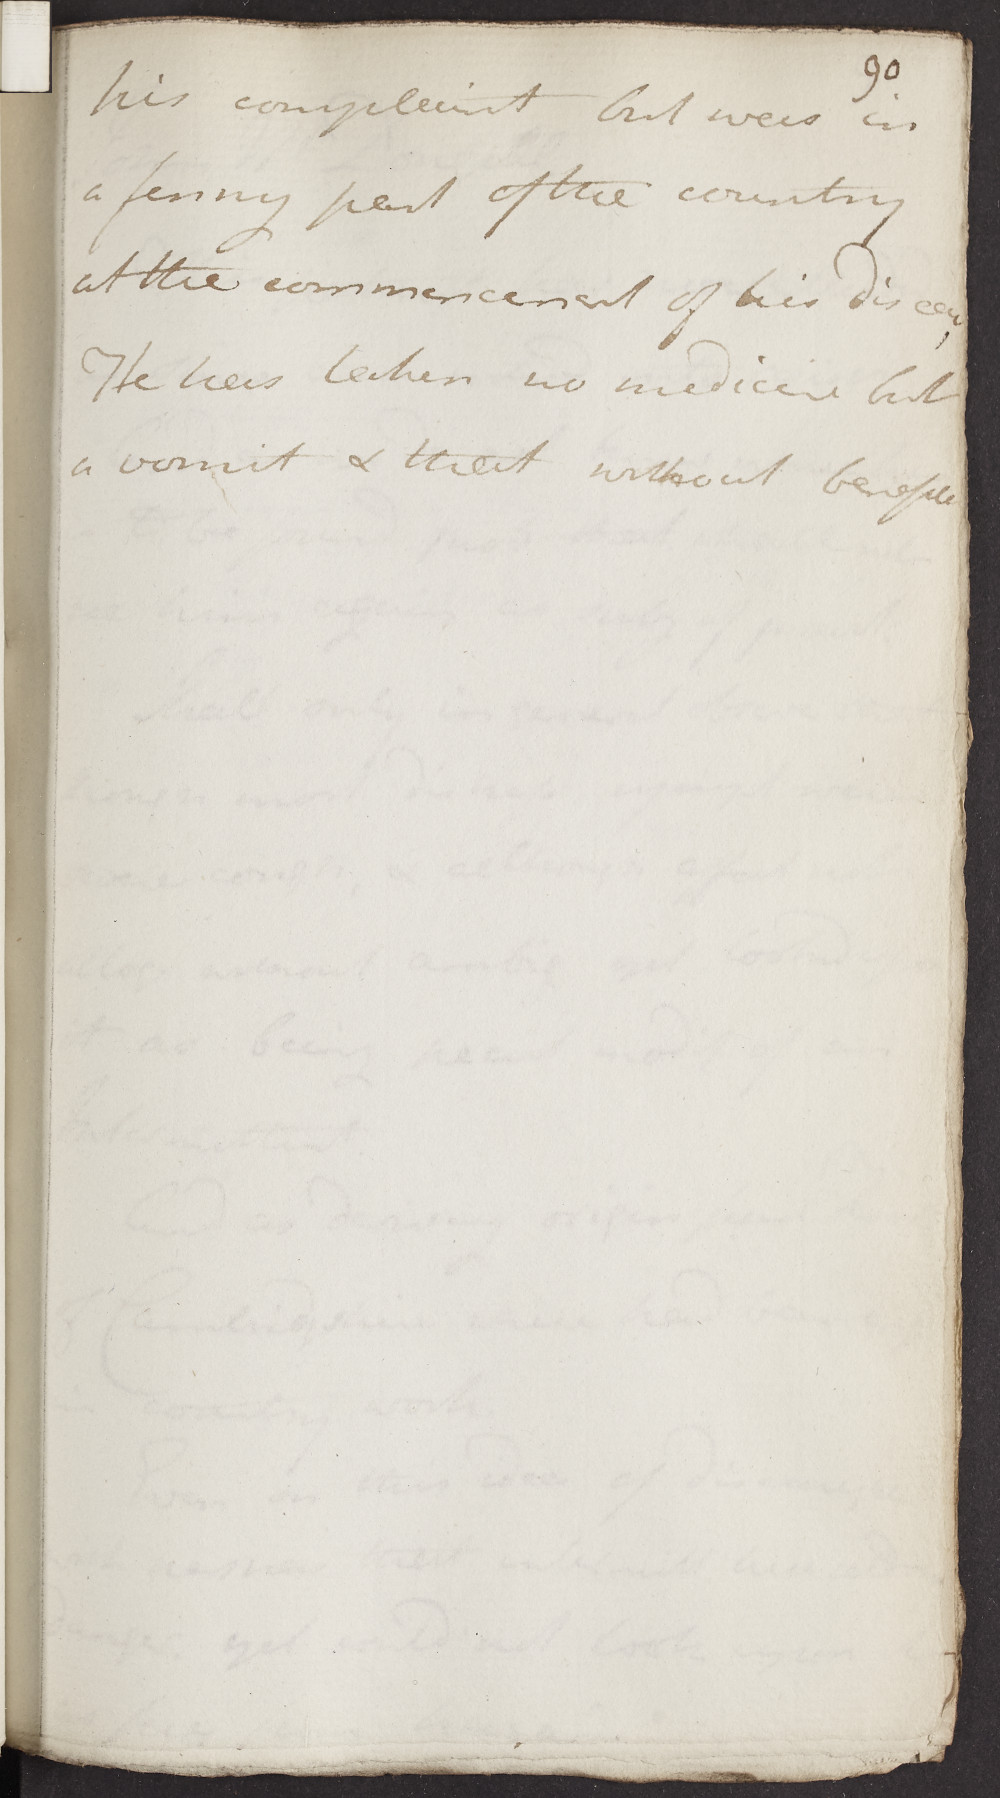 90
his complaint but was in
a fenny part of the country
at the commencement of his disease,
He has taken no medicine but
a vomit & that without benefit